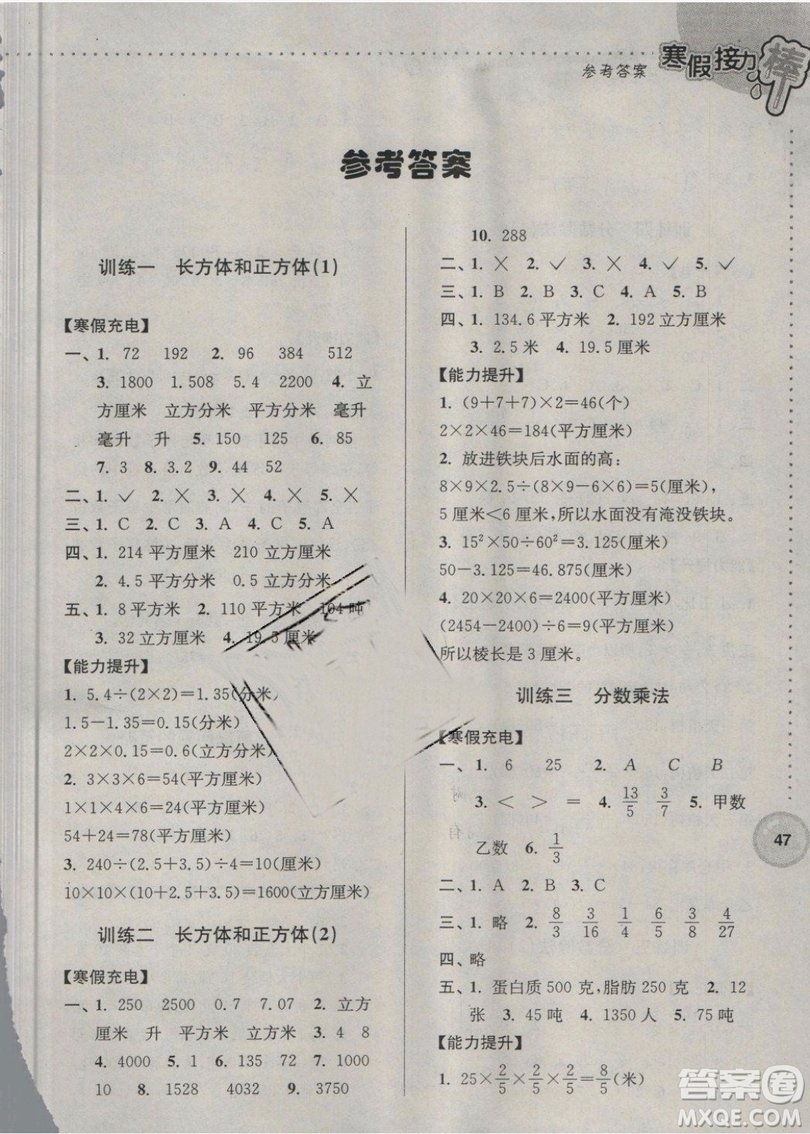 参考答案
寒假接力棒
参考答案
训练一 长方体和正方体(1)
【寒假充电】
一、1. 72 192 2. 96 384 512
3. 1800 1.508 5.4 2200 4. 立
方厘米 立方分米 平方分米 毫升
毫升 升 5. 150 125 6. 85
7. 3 8. 3.2 9. 44 52
二、1. ✓ 2. × 3. × 4. × 5. ×
三、1. C 2. C 3. A 4. C 5. A
四、1. 214 平方厘米 210 立方厘米
2. 4.5 平方分米 0.5 立方分米
五、1. 8 平方米 2. 110 平方米 104 吨
3. 32 立方厘米 4. 19.5 厘米
【能力提升】
1. 5.4÷(2×2)=1.35(分米)
1.5-1.35=0.15(分米)
2×2×0.15=0.6(立方分米)
2. 3×3×6=54(平方厘米)
1×1×4×6=24(平方厘米)
54+24=78(平方厘米)
3. 240÷(2.5+3.5)÷4=10(厘米)
10×10×(10+2.5+3.5)=1600(立方厘米)
训练二 长方体和正方体(2)
【寒假充电】
一、1. 250 2500 0.7 7.07 2. 立方
厘米 升 平方米 立方米 3. 4 8
4. 4000 5. 150 6. 52 7. 1000
10 8. 1528 4032 9. 3750
10. 288
二、1. × 2. ✓ 3. × 4. × 5. ✓
三、1. B 2. C 3. B 4. B 5. A
四、1. 134.6 平方米 2. 192 立方厘米
3. 2.5 米 4. 19.5 厘米
【能力提升】
1. (9+7+7)×2=46(个)
2×2×46=184(平方厘米)
2. 放进铁块后水面的高:
8×9×2.5÷(8×9-6×6)=5(厘米)
5 厘米<6 厘米,所以水面没有淹没铁块。
3. 15²×50÷60²=3.125(厘米)
50-3.125=46.875(厘米)
4. 20×20×6=2400(平方厘米)
(2454-2400)÷6=9(平方厘米)
所以棱长是 3 厘米。
训练三 分数乘法
【寒假充电】
一、1. 6 25 2. A C B
3. < > = 4. 13/5 3/7 5. 甲数
乙数 6. 1/3
二、1. A 2. B 3. B 4. C
三、1. 略 2. 8/3 3/16 3/8 4/9 8/27
四、略
五、1. 蛋白质 500 克,脂肪 250 克 2. 12
张 3. 45 吨 4. 1350 人 5. 75 吨
【能力提升】
1. 25×2/5×2/5×2/5=8/5(米)
47
答案圈
MXQE.COM